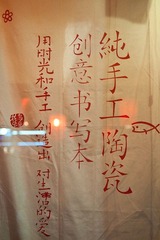 純手工陶瓷
创意书写本
用时光和手工 创造出 对生活的爱